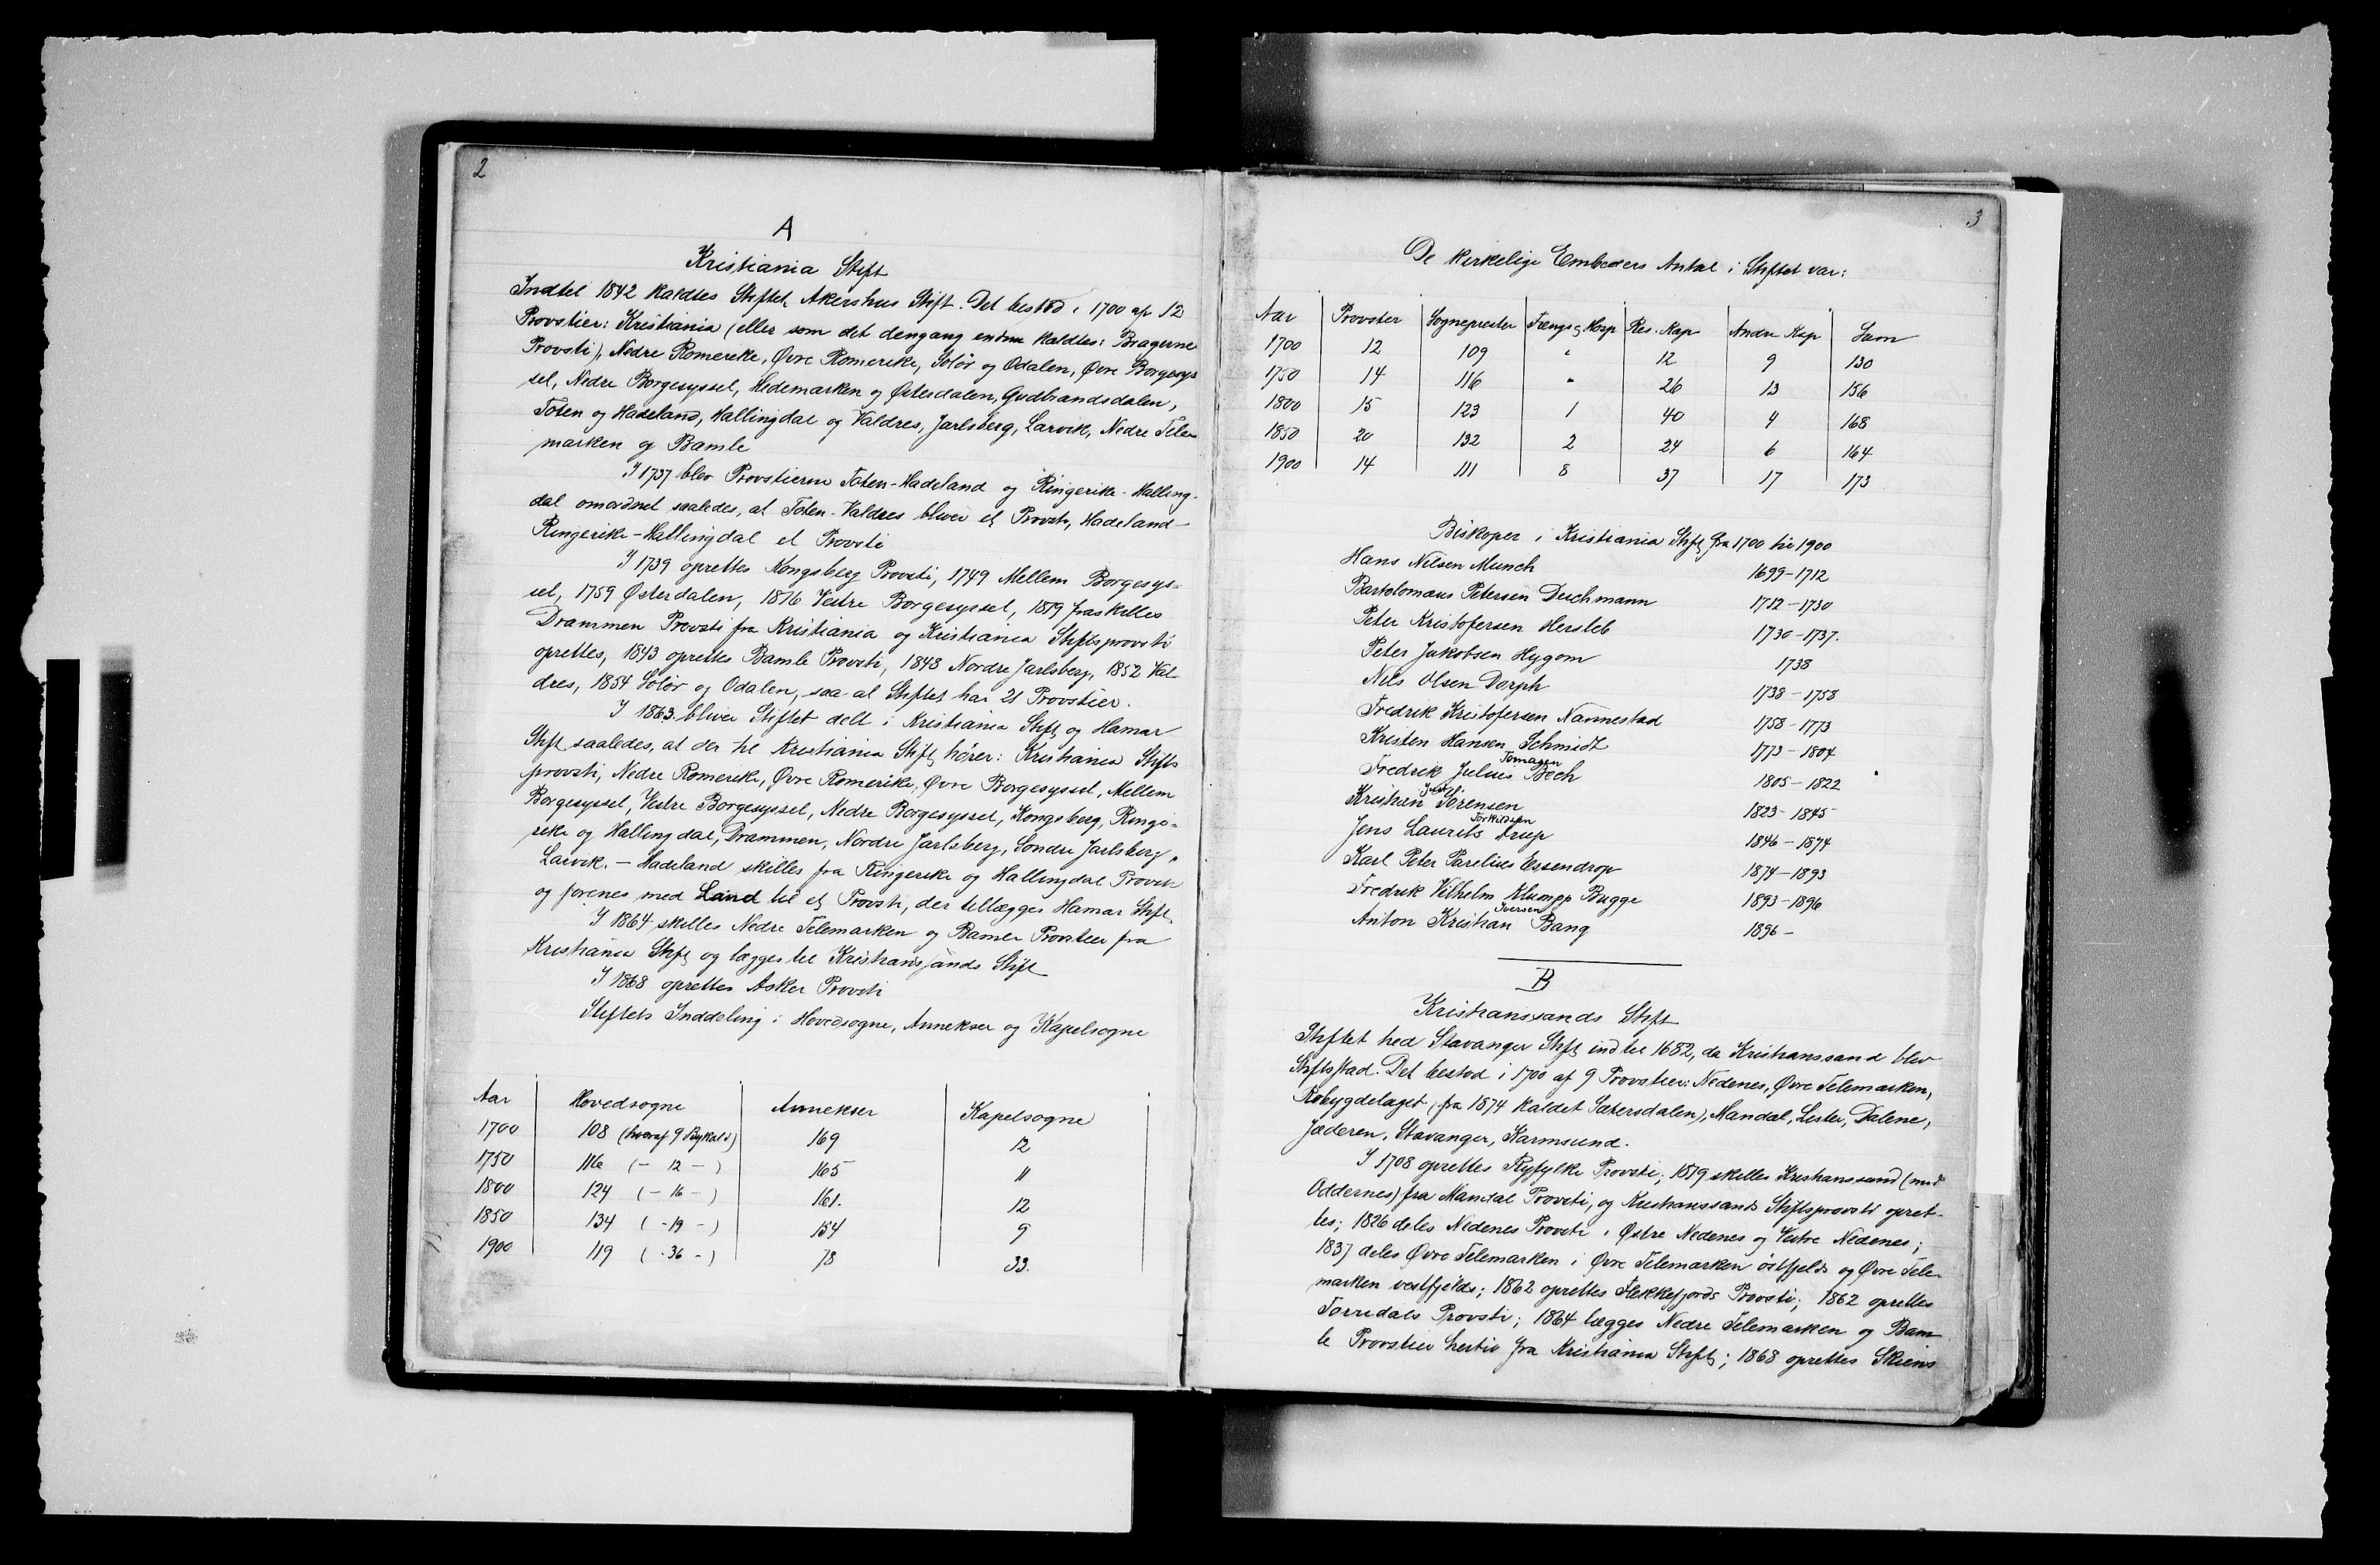 2
A
Kristiania Stift
Indtil 1842 kaldtes Stiftet Akershus Stift. Det bestod i 1700 af 12
Provstier: Kristiania (eller som det dengang endnu kaldtes: Bragerne
Provsti), Nedre Romerike, Øvre Romerike, Solør og Odalen, Øvre Borgesys
sel, Nedre Borgesyssel, Hedemarken og Østerdalen, Gudbrandsdalen,
Toten og Hadeland, Hallingdal og Valdres, Jarlsberg, Larvik, Nedre Tele-
marken og Bamle
I 1737 blev Provstierne Toten-Hadeland og Ringerike-Halling-
dal omordnet saaledes, at Toten-Valdres bliver et Provsti, Hadeland-
Ringerike-Hallingdal et Provsti
I 1739 oprettes Kongsberg Provsti, 1749 Mellem Borgesys-
sel, 1759 Østerdalen, 1816 Vestre Borgesyssel, 1819 fraskilles
Drammen Provsti fra Kristiania og Kristiania Stiftsprovsti
oprettes, 1843 oprettes Bamle Provsti, 1848 Nordre Jarlsberg, 1852 Val-
dres, 1854 Solør og Odalen, saa at Stiftet har 21 Provstier.
I 1863 bliver Stiftet delt i Kristiania Stift og Hamar
Stift saaledes, at der til Kristiania Stift hører: Kristiania Stifts
provsti, Nedre Romerike, Øvre Romerike, Øvre Borgesyssel, Mellem
Borgesyssel, Vestre Borgesyssel, Nedre Borgesyssel, Kongsberg, Ringe-
rike og Hallingdal, Drammen, Nordre Jarlsberg, Søndre Jarlsberg,
Larvik. - Hadeland skilles fra Ringerike og Hallingdal Provsti
og forenes med Land til et Provsti, der tillægges Hamar Stift
I 1864 skilles Nedre Telemarken og Bamle Provstier fra
Kristiania Stift og lægges til Kristianssands Stift
I 1868 oprettes Asker Provsti
Stiftets Inddeling i Hovedsogne, Annekser og Kapelsogne
Aar Hovedsogne Annekser Kapelsogne
1700 108 (hvoraf 9 Bykald) 169 12
1750 116 (- 12 -) 165 11
1800 124 (- 16 -) 161. 12
1850 134 (- 19 -) 154 9
1900 119 (- 36 -) 78 33.
3
De kirkelige Embeders Antal i Stiftet var:
Aar Provster Sogneprester Fængs og Hosp Res. Kap Andre Kap Sum
1700 12 109 " 12 9 130
1750 14 116 " 26 13 156
1800 15 123 1 40 4 168
1850 20 132 2 24 6 164
1900 14 111 8 37 17 173
Biskoper i Kristiania Stift fra 1700 til 1900
Hans Nilsen Munch 1699-1712
Bartolomæus Petersen Deichmann 1712-1730
Peter Kristofersen Hersleb 1730-1737.
Peter Jakobsen Hygom 1738
Nils Olsen Dorph 1738-1758
Fredrik Kristofersen Nannestad 1758-1773
Kristen Hansen Schmidt 1773-1804
Fredrik Julius Tomasen Bech 1805-1822
Kristian Sörensen 1823-1845
Jens Laurits Torkildsen Arup 1846-1874
Karl Peter Parelius Essendrop 1874-1893
Fredrik Vilhelm Klumpp Bugge 1893-1896
Anton Kristian Iversen Bang 1896-
B
Kristianssands Stift
Stiftet hed Stavanger Stift indtil 1682, da Kristianssand blev
Stiftsstad. Det bestod i 1700 af 9 Provstier: Nedenes, Øvre Telemarken,
Robygdelaget (fra 1874 kaldet Sætersdalen), Mandal, Lister, Dalene,
Jæderen, Stavanger, Karmsund.
I 1708 oprettes Ryfylke Provsti; 1819 skilles Kristianssand (med
Oddernes) fra Mandal Provsti, og Kristianssands Stiftsprovsti opret-
tes; 1826 deles Nedenes Provsti i Østre Nedenes og Vestre Nedenes;
1837 deles Øvre Telemarken i Øvre Telemarken östfjelds og Øvre Tele-
marken vestfjelds; 1862 oprettes Flekkefjords Provsti; 1862 oprettes
Torridals Provsti; 1864 lægges Nedre Telemarken og Bam
le Provstier hertil fra Kristiania Stift; 1868 oprettes Skiens